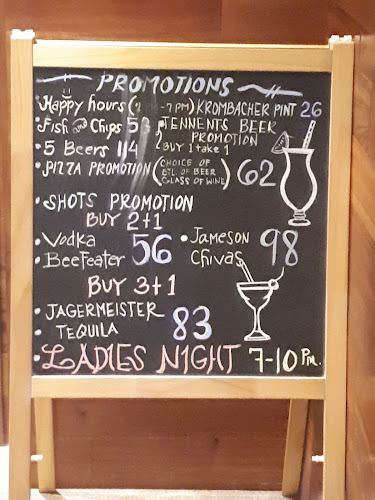 PROMOTIONS
Happy hours ( -7PM) KROMBACHER PINT 26
Fish and Chips 5 TENNENTS BEER
PROMOTION
BUY 1 take 1
5 Beers 114
PIZZA PROMOTION (CHOICE OF BTL. OF BEER GLASS OF WINE) 62
SHOTS PROMOTION
BUY 2+1
Vodka
Beefeater 56
Jameson
Chivas 98
BUY 3+1
JAGERMEISTER
TEQUILA 83
LADIES NIGHT 7-10 Pm.